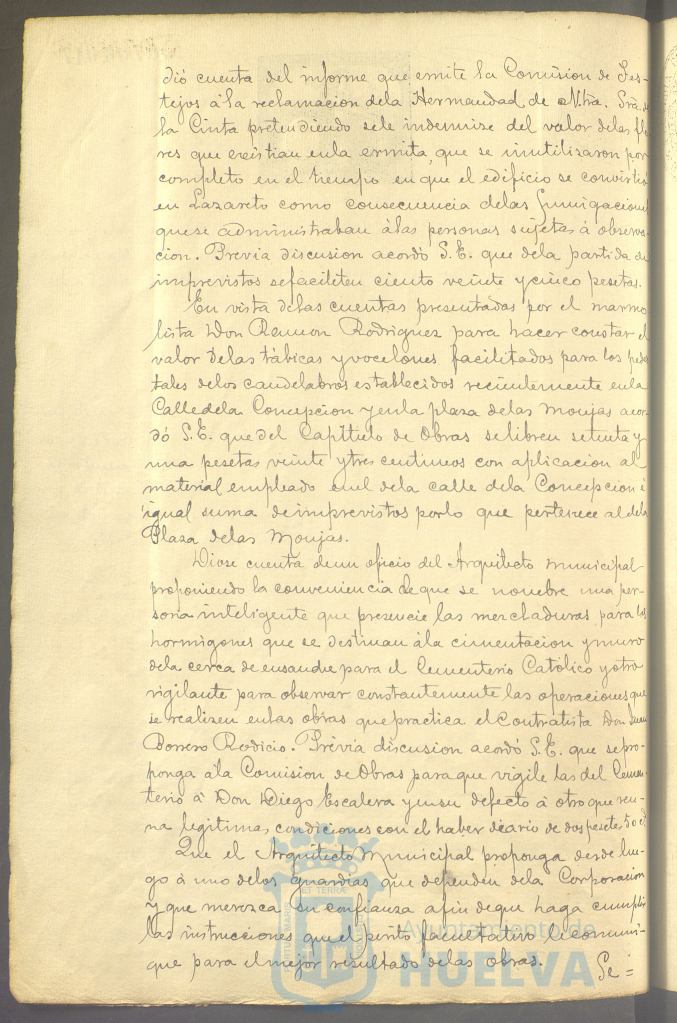 dió cuenta del informe que emite la Comision de Fes-
tejos á la reclamacion dela Hermandad de Ntra. Sra. de
la Cinta pretendiendo sele indemnise del valor delas flo
res que existian enla ermita, que se inutilisaron por
completo en el tiempo en que el edificio se convirtió
en Lazareto como consecuencia delas fumigaciones
quese administraban á las personas sujetas á observa
cion. Previa discusion acordó S.E. que dela partida de
imprevistos sefaciliten ciento veinte y cinco pesetas.
En vista delas cuentas presentadas por el marmo
lista Don Ramon Rodriguez para hacer constar el
valor delas tábicas y vocelones facilitados para los pedes
tales delos candelabros establecidos recientemente enla
Calle dela Concepcion y enla plaza delas Monjas acor-
dó S.E. que del Capítulo de Obras selibren setenta y
una pesetas veinte y tres centimos con aplicacion al
material empleado en el dela calle dela Concepcion é
igual suma de imprevistos porlo que pertenece al dela
Plaza delas Monjas.
Diose cuenta de un oficio del Arquitecto municipal
proponiendo la conveniencia de que se nombre una per-
sona inteligente que presencie las mezcladuras para los
hormigones que se destinan ála cimentacion y muro
dela cerca de ensanche para el Cementerio Católico y otro
vigilante para observar constantemente las operaciones que
se realizen enlas obras que practica el contratista Don Juan
Borrero Rodicio. Prévia discusion acordó S.E. que se pro-
ponga ála Comision de Obras para que vigile las del Cemen-
terio á Don Diego Escalera y en su defecto á otro que reu-
na legitimas condiciones con el haber diario de dos pesetas 50 ct
Que el Arquitecto Municipal proponga desde lue-
go á uno delos guardias que dependen dela Corporacion
y que merezca su confianza a fin de que haga cumplir
las instrucciones que el perito facultativo le comuni-
que para el mejor resultado delas obras. Se =
Ayuntamiento de
HUELVA